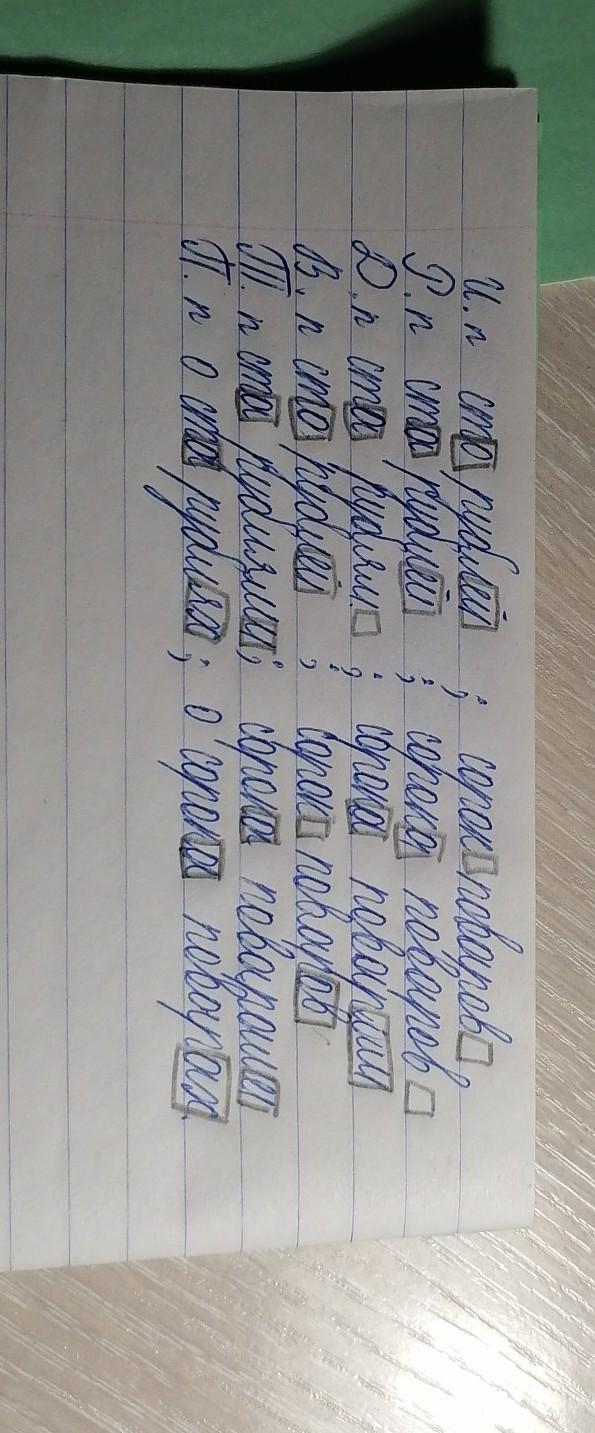 И.п сто рублей ; сорок поваров
Р.п ста рублей ; сорока поваров
Д.п ста рублям ; сорока поварам
В.п сто рублей ; сорок поваров
Т.п ста рублями ; сорока поварами
П.п о ста рублях ; о сорока поварах.